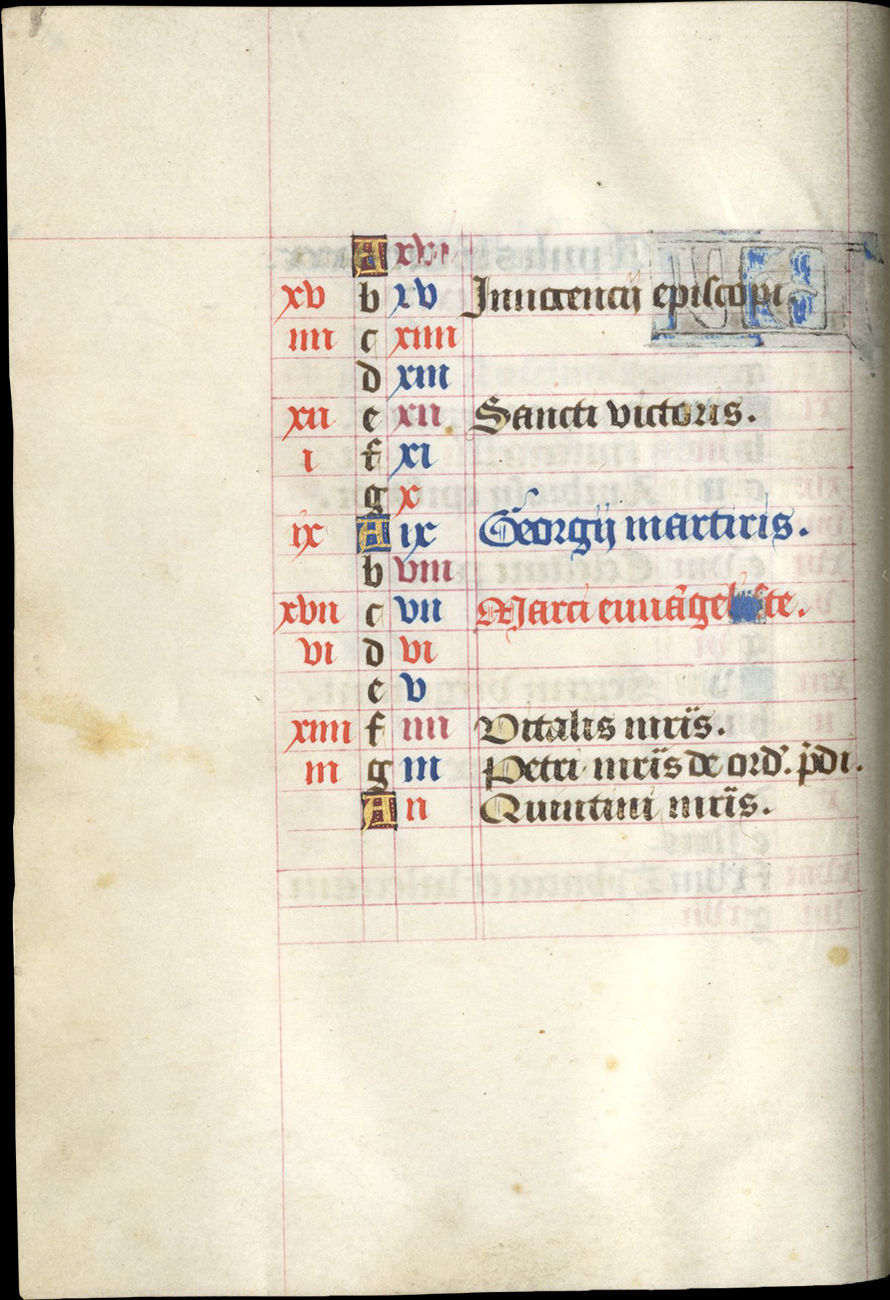 A xvi
xv b xv Innocencij episcopi.
iiii c xiiii
d xiii
xii e xii Sancti victoris.
i f xi
g x
ix A ix Georgij martiris.
b viii
xvii c vii Marci euuāgeliste.
vi d vi
e v
xiiii f iiii Vitalis mrīs.
iii g iii Petri mrīs de ord'. p̄di.
A ii Quintini mrīs.